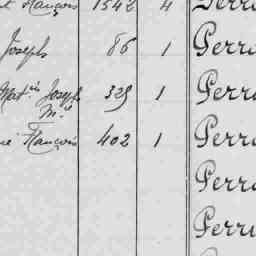 François 1542 4 Perr
Joseph 86 1 Perro
Mat.is Joseph 329 1 Perro
M.is
François 402 1 Perro
Perro
Perru